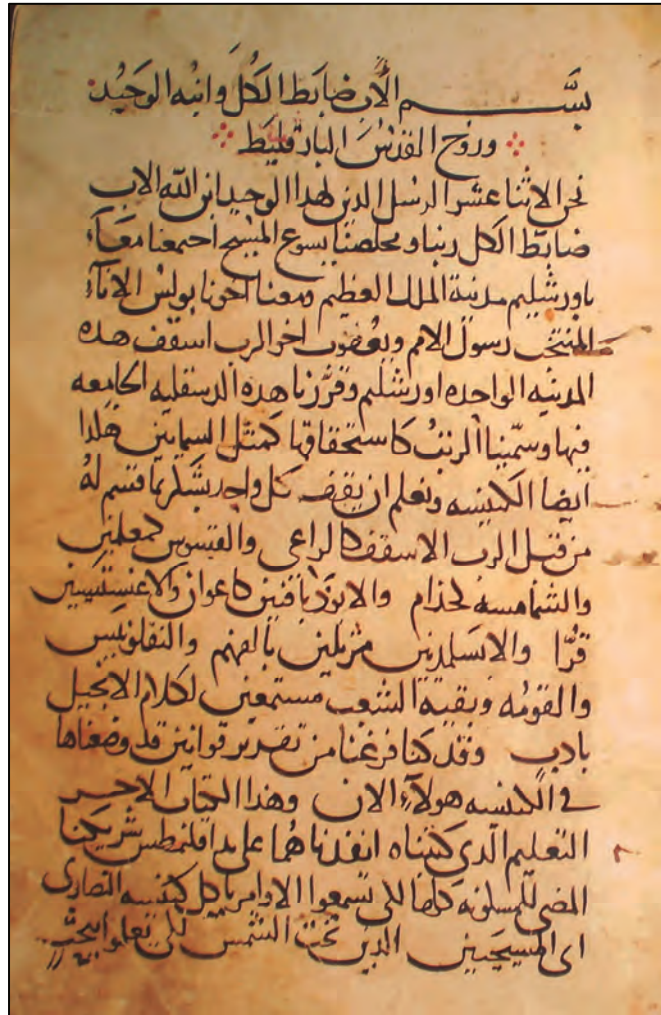 بسم الاب ضابط الكل وابنه الوحيد
وروح القدس البارقليط
نحن الاثنا عشر الرسل الدين لهدا الوحيد ابن الله الاب
ضابط الكل ربنا ومخلصنا يسوع المسيح اجتمعنا معاً
باورشليم مدينة الملك العظيم ومعنا اخونا بولس الاناء
المنتخب رسول الامم ويعقوب اخو الرب اسقف هده
المدينه الواحده اورشليم وقررنا هده الدسقليه الجامعه
فيها وسمينا الرتب كاستحقاقها كمثل السمايين هكدا
ايضا الكنيسه ونعلم ان يقف كل واحد بشكر بما قسم له
من قبل الرب الاسقف كالراعي والقسوس كمعلمين
والشمامسه كخدام والابودياقنين كاعوان والاغنسطسيين
قرّا والابسلمدنين مرتلين بالفهم
والقومه وبقية الشعب مستمعين لكلام الانجيل
بادب وقد كنا فرغنا من تقرير قوانين قد وضعناها
في الكنيسه هولاء الان وهدا الكتاب الاخر
التعليم الدي كتبناه انفدناهما على يد اقلمنطس شريكنا
المسكونه كلها لكي تسمعوا الاوامر يا كل كنيسه النصارى
اي المسيحيين الدين تحت الشمس لكي تعلموا